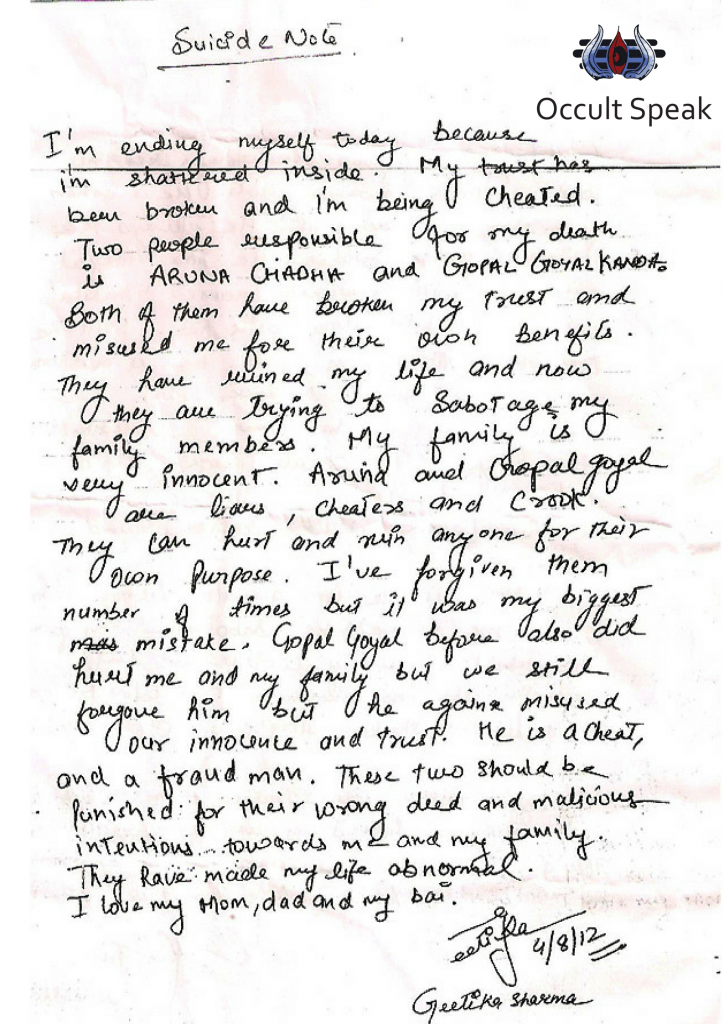 Suicide Note
Occult Speak
I'm ending myself today because
i'm shattered inside. My trust has
been broken and i'm being cheated.
Two people responsible for my death
is ARUNA CHADHA and GOPAL GOYAL KANDA.
Both of them have broken my trust and
misused me for their own benefits.
They have ruined my life and now
they are trying to Sabotage my
family members. My family is
very innocent. Aruna and Gopal goyal
are liars, cheaters and Crook.
They can hurt and ruin anyone for their
own purpose. I've forgiven them
number of times but it was my biggest
mistake. Gopal Goyal before also did
hurt me and my family but we still
forgave him but he again misused
our innocence and trust. He is a cheat,
and a fraud man. These two should be
punished for their wrong deed and malicious
intentions towards me and my family.
They have made my life abnormal.
I love my Mom, dad and my bai.
4/8/12
Geetika Sharma